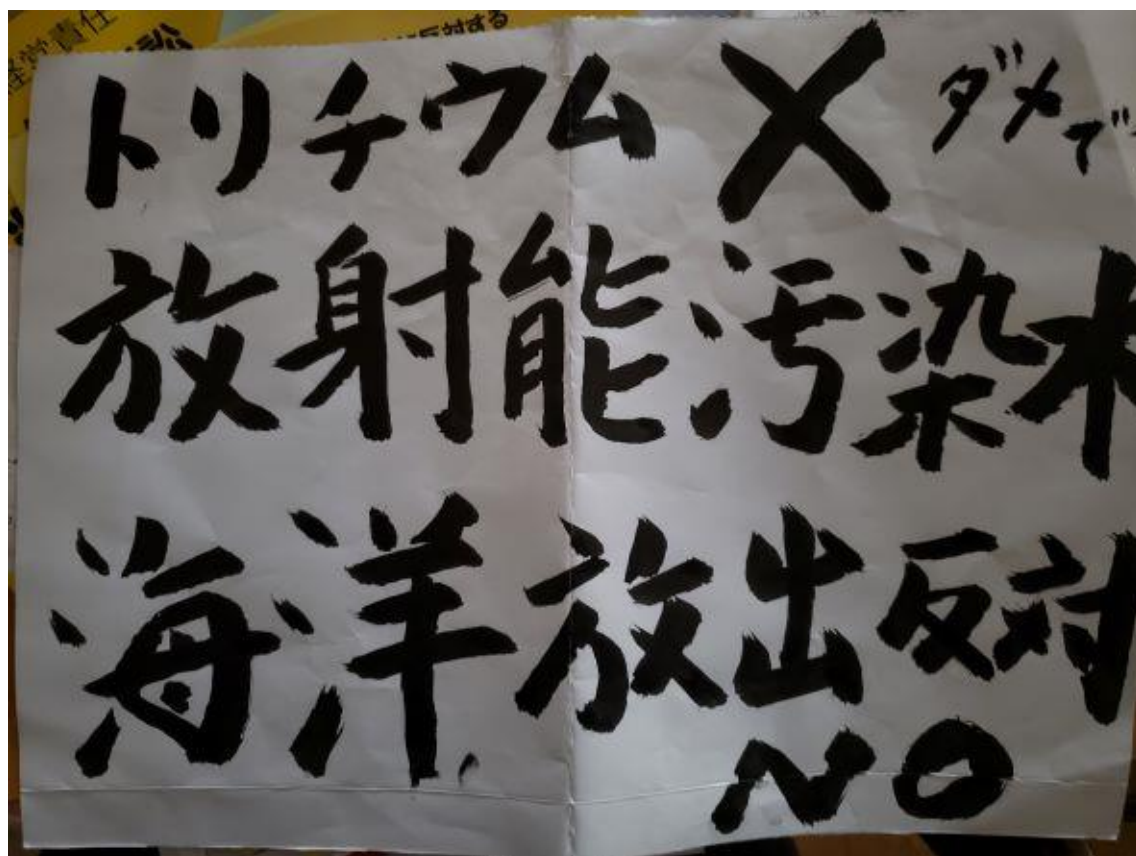 経営責任
反対する
トリチウム X ダメで
放射能汚染水
海洋放出反対
NO